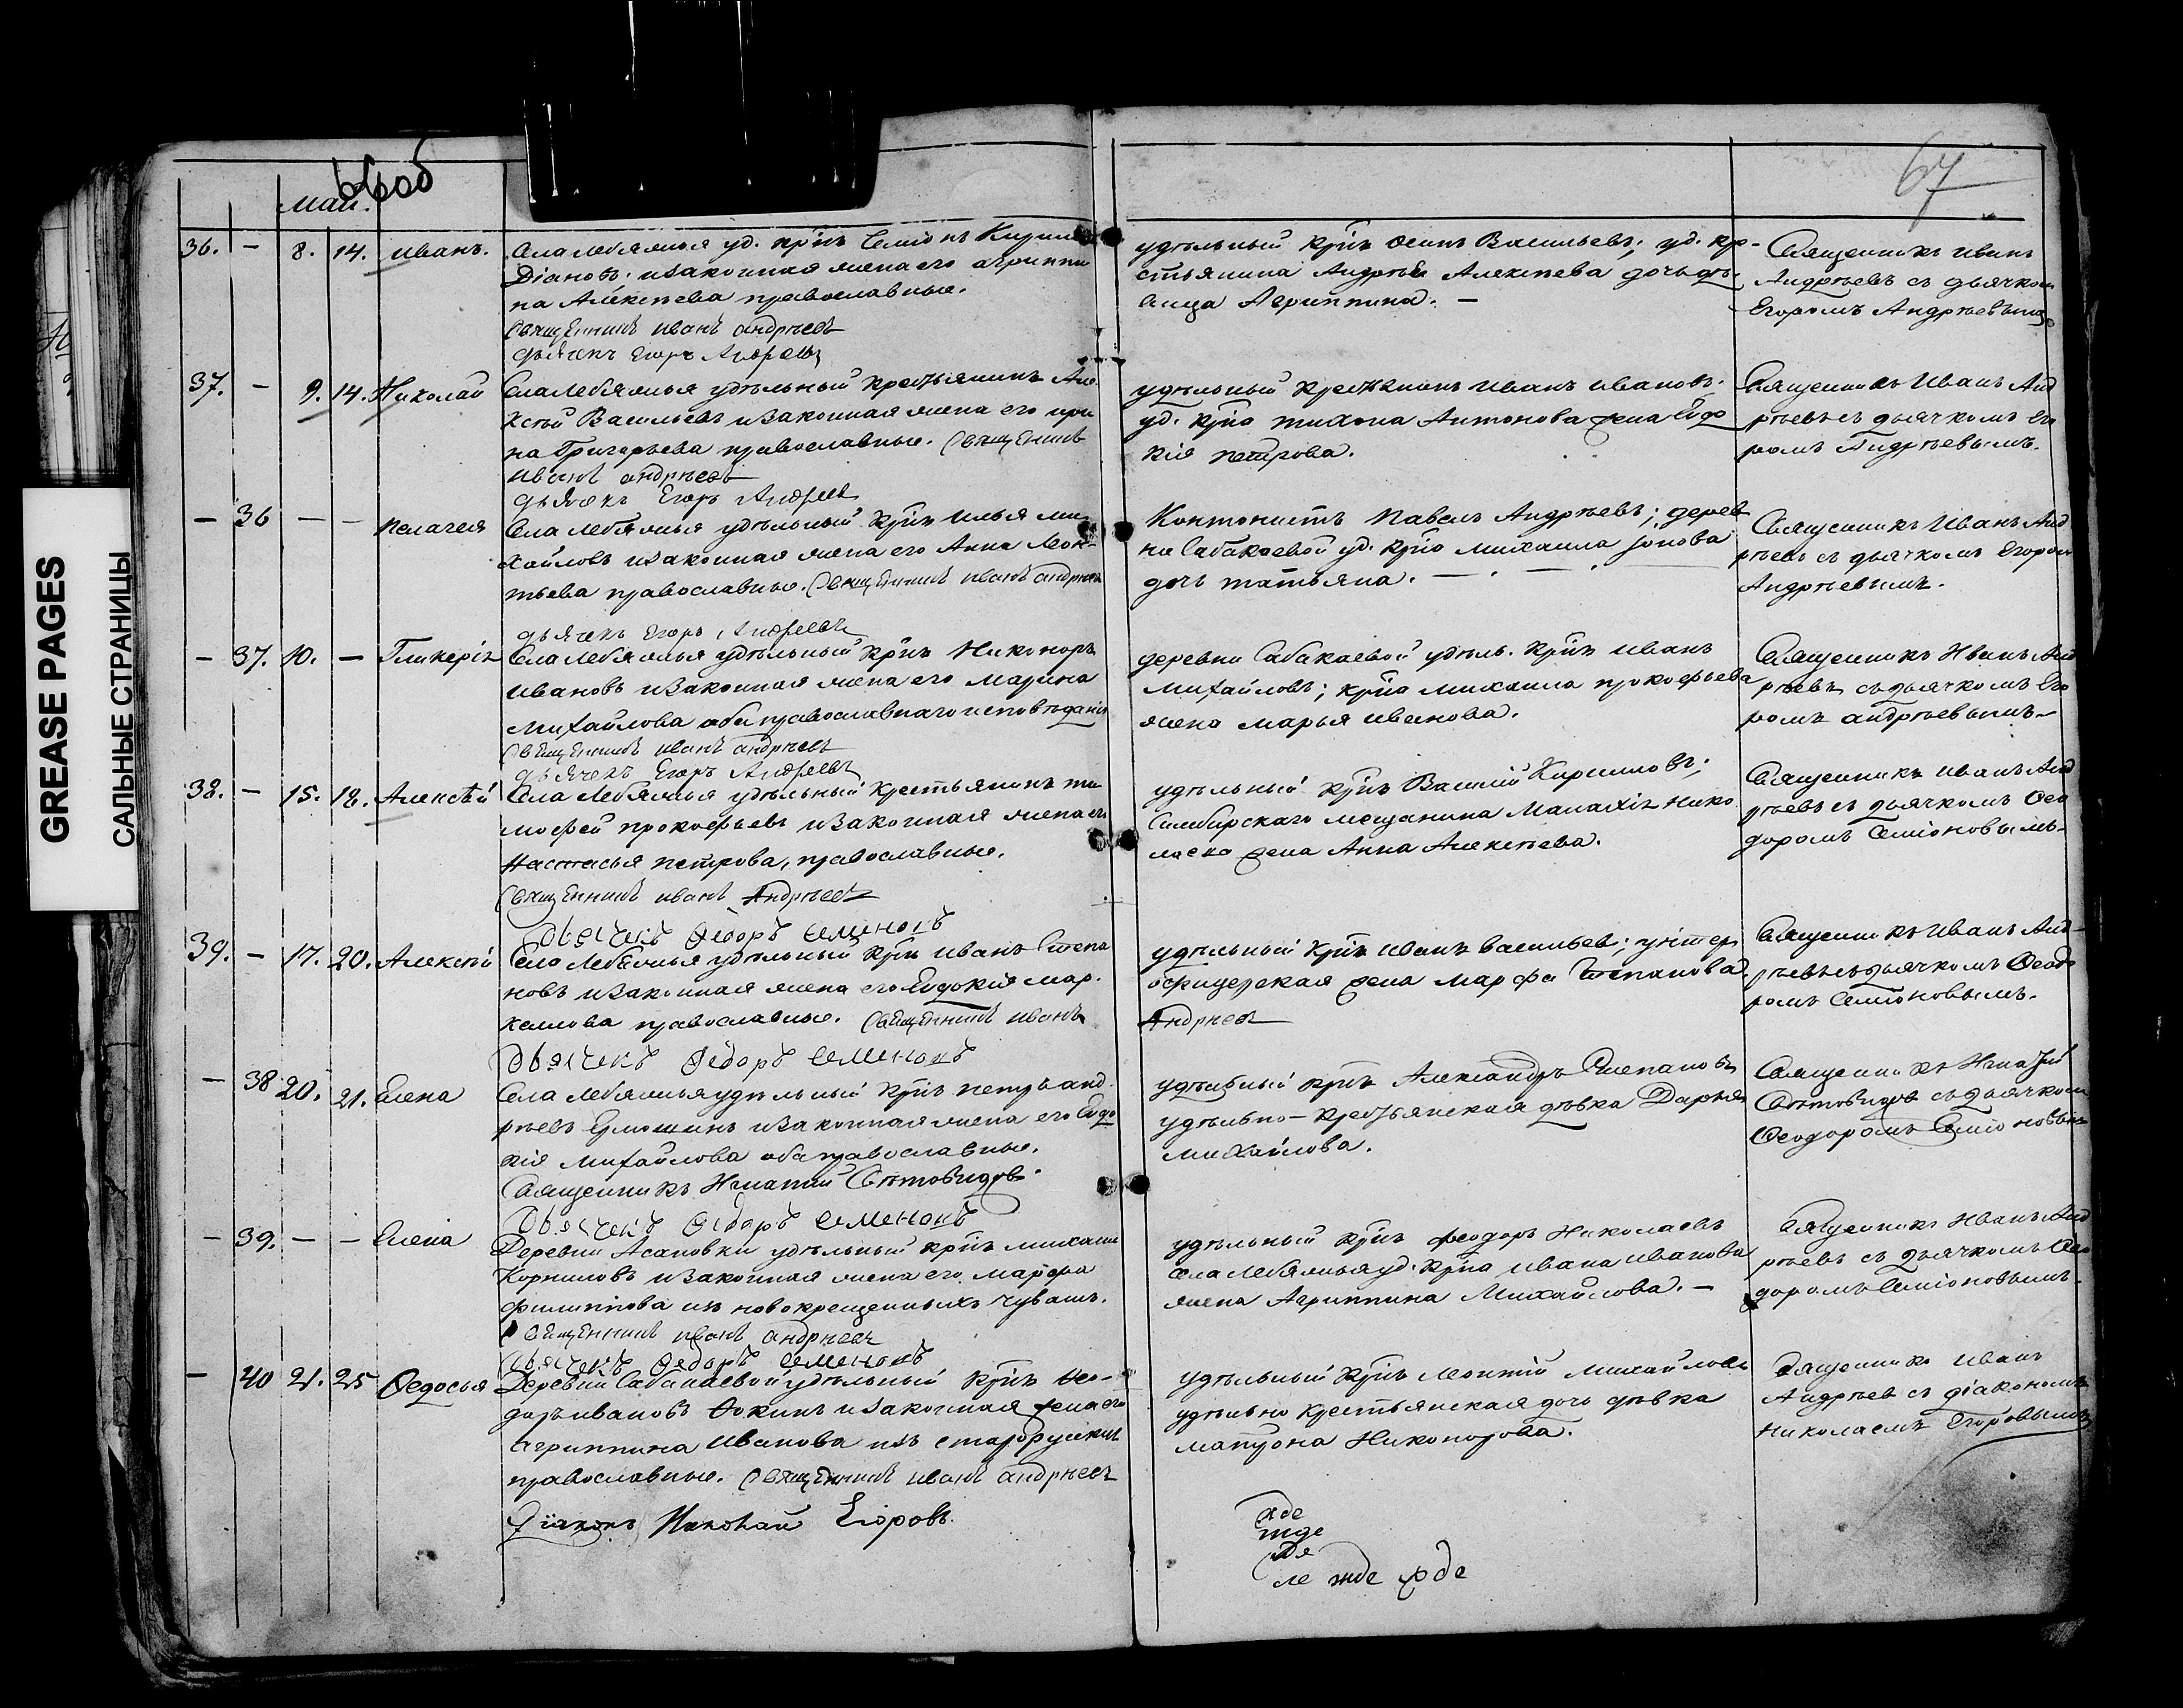 66об
67
май.
GREASE PAGES
САЛЬНЫЕ СТРАНИЦЫ
36. — 8. 14. иванъ.
Села Лебяжья уд. крiнъ Семiонъ Кирил
Дiановъ изаконная жена его агриппи
на Алексѣева православные.
Священникъ иванъ андрѣевъ
дьячекъ Егоръ Андреевъ
удѣльный крiнъ Осипъ Васильевъ; уд. кре-
стьянина Андрѣя Алексѣева дочь дѣ
вица Агриппина. —
Священникъ иванъ
Андрѣевъ съ дьячком
Егоромъ Андрѣевымъ
37. — 9. 14. Николай
Села Лебяжья удѣльный крестьянинъ Але
ксѣй Васильевъ изаконная жена его ири
на Григорьева православные. Священникъ
иванъ андрѣевъ
дьячекъ Егоръ Андреевъ
удѣльный крестьянинъ иванъ ивановъ;
уд. крiна тихона Антонова жена Евдо
кiя петрова.
Священникъ Иванъ Анд
рѣевъ съ дьячкомъ Его
ромъ Андрѣевымъ.
— 36 — — пелагея
Села Лебяжья удѣльный крiнъ илья ми
хайловъ изаконная жена его Анна Леон-
тьева православные. Священникъ иванъ андрѣевъ
дьячекъ Егоръ Андреевъ
Контонистъ Павелъ Андрѣевъ; дерев
ни Сабакаевой уд. крiна михаила iонова
дочь татьяна. — . — . —
Священникъ Иванъ Анд
рѣевъ съ дьячкомъ Егором
Андрѣевымъ.
— 37. 10. — Гликерiя
Села Лебяжья удѣльный крiнъ Никоноръ
ивановъ изаконная жена его марина
михайлова оба православнаго исповѣданiя
Священникъ иванъ андрѣевъ
дьячекъ Егоръ Андреевъ
деревни Сабакаевой удѣль. крiнъ иванъ
михайловъ; крiна михаила прокофьева
жена марья иванова.
Священникъ Иванъ Анд
рѣевъ съ дьячкомъ Его
ромъ андрѣевымъ
38. — 15. 18. Алексѣй
Села Лебяжья удѣльный крестьянинъ ти
мофей прокофьевъ изаконная жена его
Настасья петрова, православные.
Священникъ иванъ Андрѣевъ
Дьячекъ Ѳедоръ семеновъ
удѣльный крiнъ Василiй Кириловъ;
Симбирскаго мещанина Малахiя нико
лаева жена Анна Алексѣева.
Священникъ иванъ Анд
рѣевъ съ дьячкомъ Ѳео
доромъ Семiоновымъ.
39. — 17. 20. Алексѣй
Села Лебяжья удѣльный крiнъ иванъ Степа
новъ изаконная жена его Евдокiя мар.
келлова православные. Священникъ иванъ
Дьячекъ Ѳедоръ семеновъ
удѣльный крiнъ иванъ васильев; унтер
офицерская жена марфа Степанова.
Андрѣевъ
Священникъ Иванъ Анд-
рѣевъ съ дьячкомъ Ѳеодо
ромъ Семiоновымъ.
— 38 20. 21. Елена
Села Лебяжья удѣльный крiнъ петръ анд.
рѣевъ Ермошинъ изаконная жена его Евдо
кiя михайлова оба православные.
Священникъ Игнатий Свѣтовидов.
Дьячекъ Ѳедоръ семеновъ
удѣльный крiнъ Александръ Степановъ
удѣльно-крестьянская дѣвка Дарья
михайлова.
Священникъ Игнатий
Свѣтовидов съ дьячком
Ѳеодоромъ Семiоновым
— 39. — — Елена
Деревни Асановки удѣльный крiнъ михаил
Корниловъ изаконная жена его марфа
филиппова изъ новокрещенныхъ чувашъ.
Священникъ иванъ андрѣевъ
Дьячекъ Ѳедоръ семеновъ
удѣльный крiнъ феодоръ Николаевъ
села Лебяжья уд. крiна ивана иванова
жена Агриппина Михайлова. —
Священникъ Иванъ Анд
рѣевъ съ дьячкомъ Ѳео
доромъ Семiоновымъ.
— 40 21. 25 Ѳедосья
Деревни Сабакаевой удѣльный крiнъ Ѳео-
доръ ивановъ Ѳокинъ изаконная жена его
агриппина иванова изъ старорускихъ
православные. Священникъ иванъ андрѣевъ
Дiаконъ Николай Егоровъ.
удѣльный крiнъ Леонтiй михайловъ
удѣльно крестьянская дочь дѣвка
матрона Никонорова.
Священникъ иванъ
Андрѣев съ дiакономъ
Николаемъ Егоровымъ
жде
ле жде